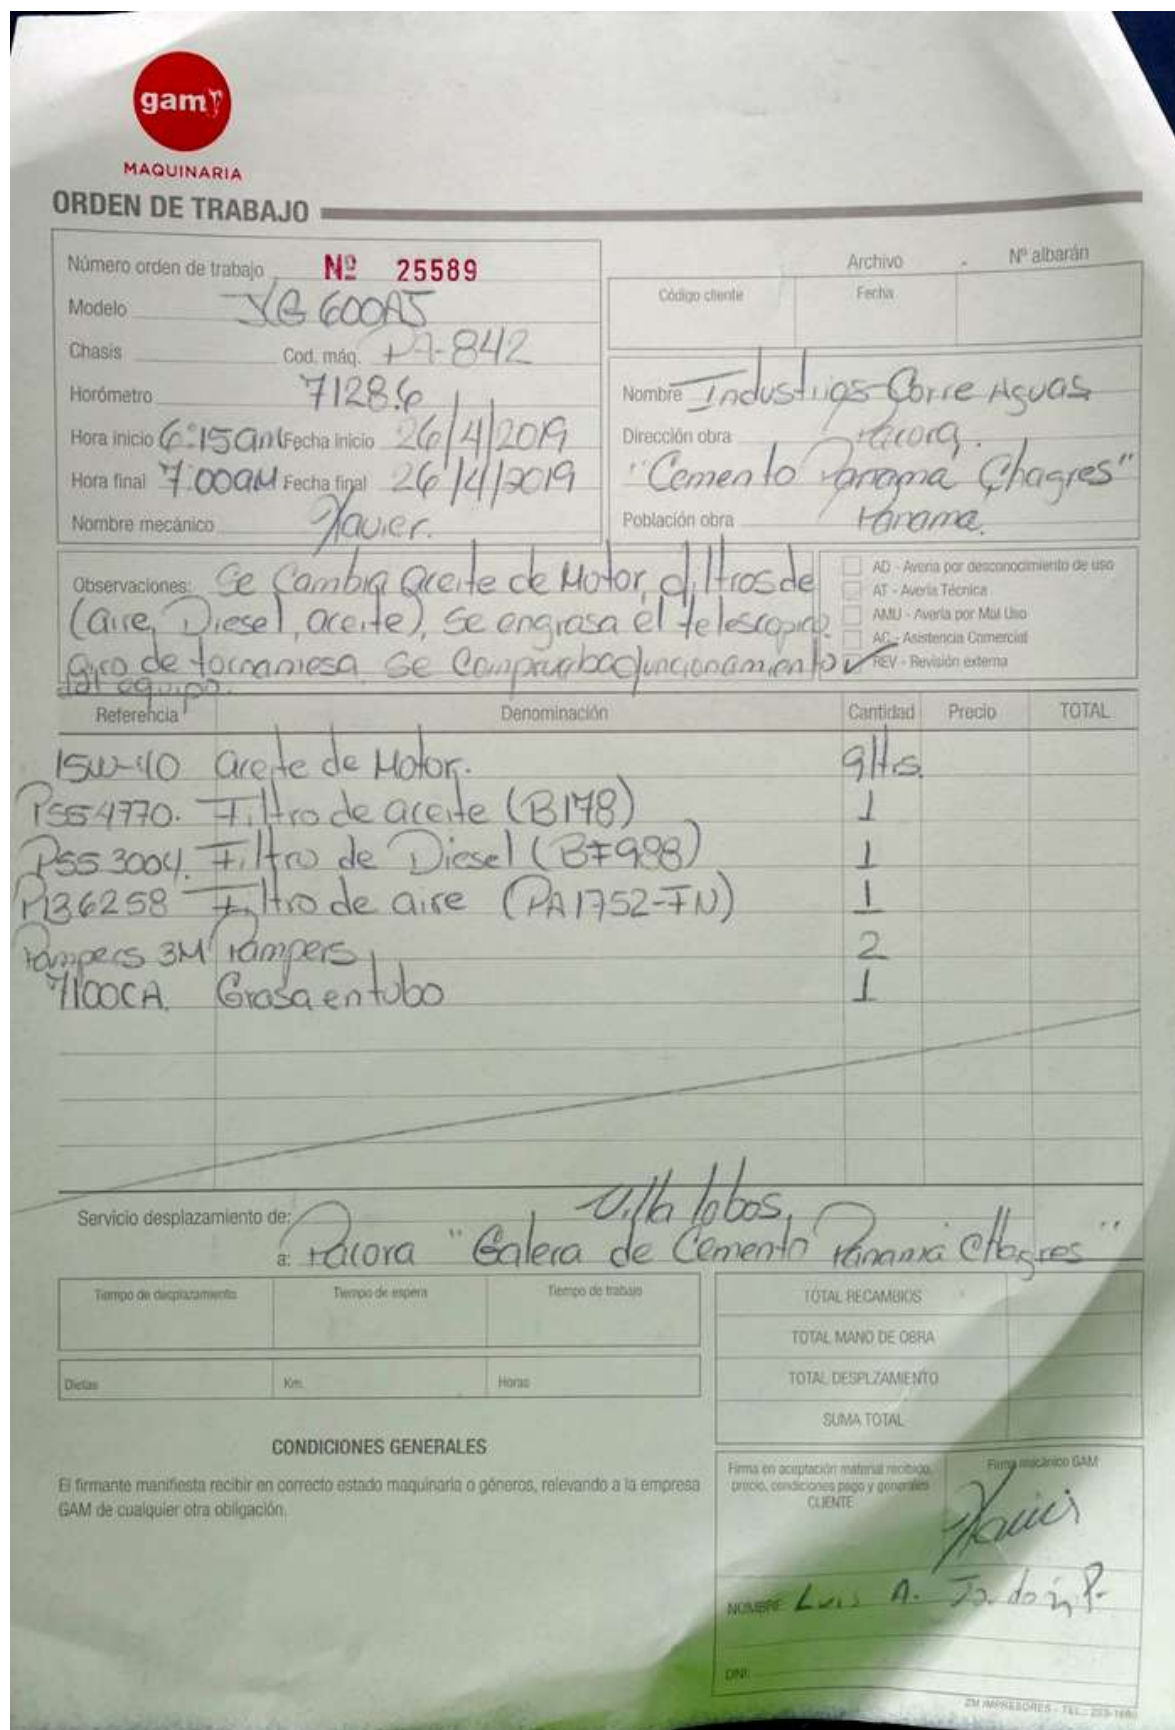 gam
MAQUINARIA
ORDEN DE TRABAJO
Número orden de trabajo Nº 25589
Modelo 600AJ
Chasis Cod. máq. PA-842
Horómetro 7128.6
Hora inicio 6:15am Fecha inicio 26/4/2019
Hora final 7:00am Fecha final 26/4/2019
Nombre mecánico Xavier.
Archivo Nº albarán
Código cliente Fecha
Nombre Industrias Corre Aguas
Dirección obra Pacora,
"Cemento Panama Chagres"
Población obra Panama.
Observaciones: Se Cambia aceite de Motor, filtros de
(aire, Diesel, aceite), se engrasa el telescopico.
giro de tornamesa. Se Comprueba funcionamiento
del equipo.
AD - Avería por desconocimiento de uso
AT - Avería Técnica
AMU - Avería por Mal Uso
AC - Asistencia Comercial
REV - Revisión externa
Referencia Denominación Cantidad Precio TOTAL
15W-40 aceite de Motor. 9 ltrs.
P554770. Filtro de aceite (B178) 1
P553004. Filtro de Diesel (BF988) 1
P136258 Filtro de aire (PA1752-FN) 1
Pampers 3M Pampers 2
7100CA. Grasa en tubo 1
Servicio desplazamiento de: Villa lobos,
a: Pacora "Galera de Cemento Panamá Chagres"
Tiempo de desplazamiento Tiempo de espera Tiempo de trabajo
Dietas Km. Horas
TOTAL RECAMBIOS
TOTAL MANO DE OBRA
TOTAL DESPLZAMIENTO
SUMA TOTAL
CONDICIONES GENERALES
El firmante manifiesta recibir en correcto estado maquinaria o géneros, relevando a la empresa
GAM de cualquier otra obligación.
Firma en aceptación material recibido,
precio, condiciones pago y generales
CLIENTE
Firma mecánico GAM
Xavier
NOMBRE Luis A.
DNI:
ZM IMPRESORES - TEL.: